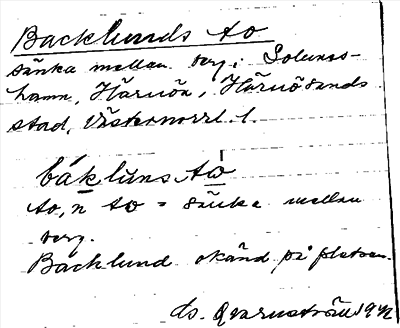 Backlunds to
sänka mellan berg i Solums-
hamn, Härnön, Härnösands
stad, Västernorrl. l.
båklùns tω
to, n to = sänka mellan
berg.
Backlund okänd på platsen.
ds. Qvarnström 1942